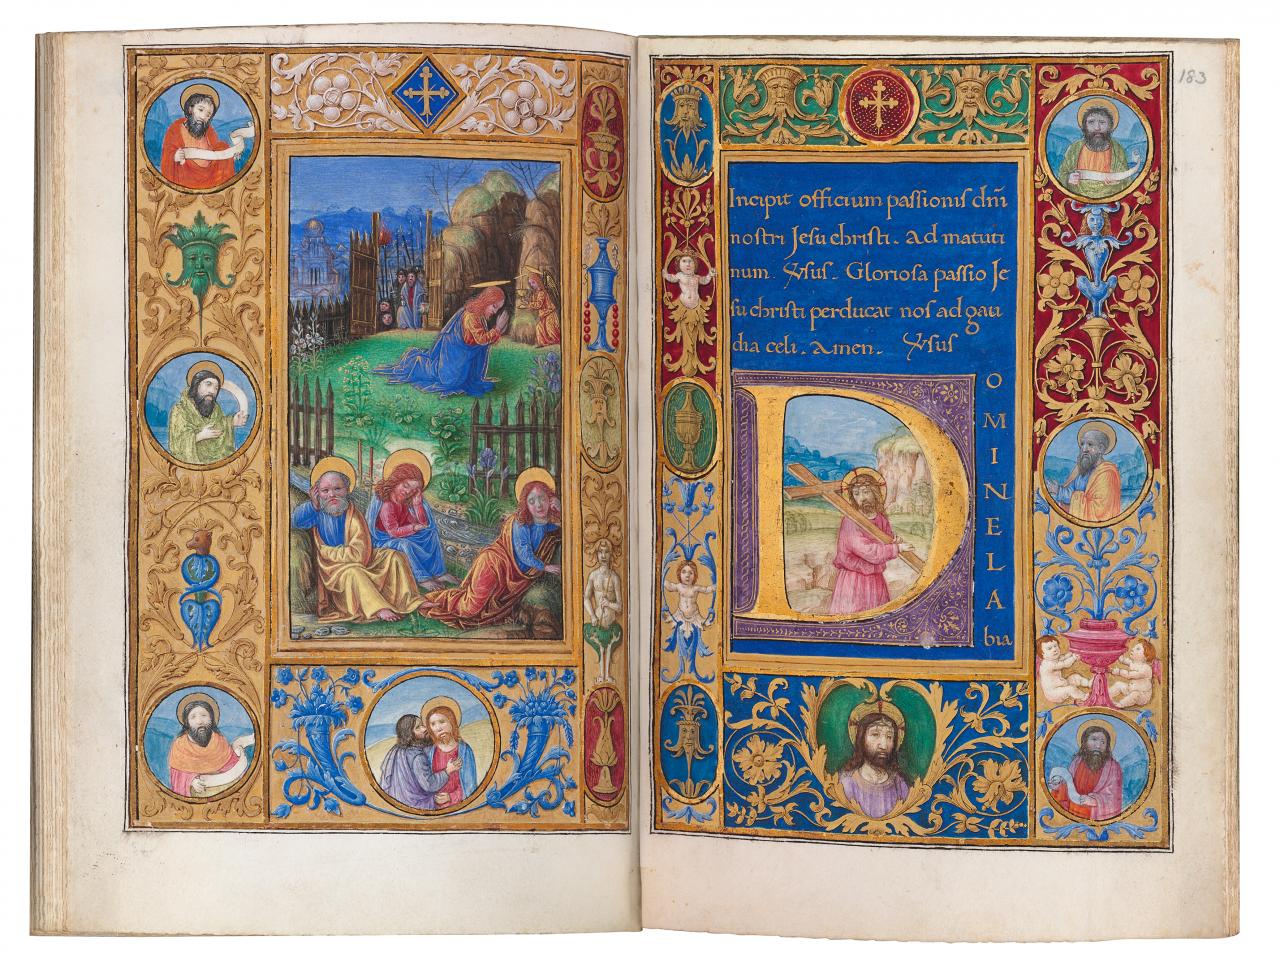 183
Incipit officium passionis dn̄i
nostri Jesu christi. Ad matuti
num. Vsus. Gloriosa passio Je
su christi perducat nos ad gau
dia celi. Amen. Vsus
D
O
M
I
N
E
L
A
bia